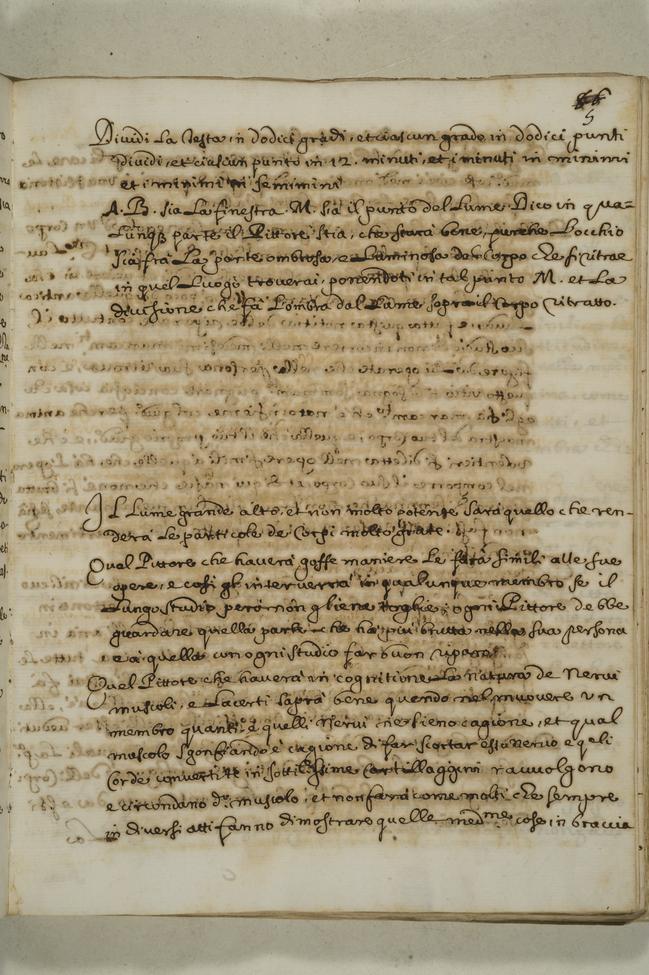 5
Diuidi La testa in dodici gradi, et ciascun grado in dodici punti
diuidi, et ciascun punto in 12. minuti, et i minuti in minimi
et i minimi in seminimi
A. B. sia La finestra. M. sia il punto del Lume. Dico in qua=
Lunq3 parte il Pittore stia, che stara bene, purche L'occhio
sia fra La parte ombrosa, e Luminosa del Corpo che si ritrae
in quel Luogo trouerai, ponendoti in tal punto M. et La
diuisione che fa L'ombra dal Lume sopra il Corpo ritratto.
IL Lume grande alto, et non molto potente sarà quello che ren-
derà Le particole de Corpi molto grate.
Quel Pittore che hauerà goffe maniere Le farà simili alle sue
opere, e cosi gl'interuerrà in qualunque membro se il
Lungo studio però non gliene toglie; ogni Pittore debbe
guardare quella parte che ha più brutta nella sua persona
e à quella con ogni studio far buon riparo.
Quel Pittore che hauerà in cognitione La natura de Nerui
muscoli, e Lacerti saprà bene quando nel muouere un
membro quanti, e quelli Nerui ne sieno cagione, et qual
muscolo sgonfiando è cagione di far scortar esso Neruo e q̃li
corde conuertite in sottilissime Cartillaggini rauuolgono
e circondano d.º muscolo, et non farà come molti che sempre
in diuersi atti fanno dimostrare quelle med.me cose in braccia